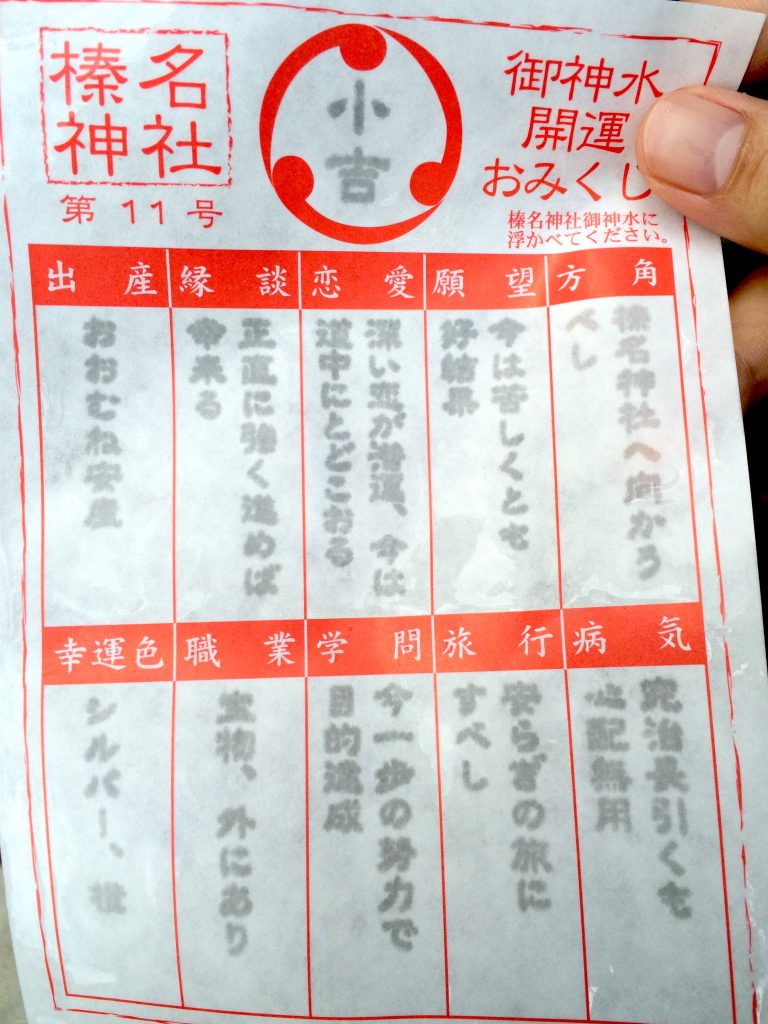 榛名
神社
第11号
小吉
御神水
開運
おみくじ
榛名神社御神水に
浮かべてください。
方角
榛名神社へ向かう
べし
願望
今は苦しくとも
好結果
恋愛
深い恋が、今は
道中にとどこおる
縁談
正直に強く進めば
幸来る
出産
おおむね安産
病気
完治長引くも
心配無用
旅行
安らぎの旅に
すべし
学問
今一歩の努力で
目的達成
職業
宝物、外にあり
幸運色
シルバー、